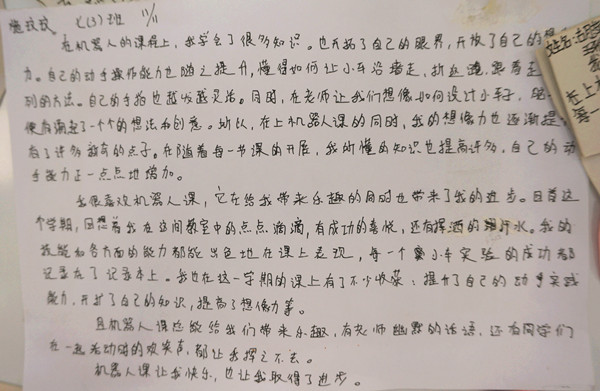 七(3)班 11/11
在机器人的课程上，我学会了很多知识。也开拓了自己的眼界，开放了自己的
力。自己的动手操作能力也随之提升，懂得如何让小车沿墙走，折返跑，跟着走
列的方法。自己的手指也越发越灵活。同时，在老师让我们想像如何设计小车子，
便有涌起了一个个的想法和创意。所以，在上机器人课的同时，我的想像力也逐渐提
有了许多新奇的点子。在随着每一节课的开展，我所懂的知识也提高许多，自己的动
手能力正一点点地增加。
我很喜欢机器人课，它在给我带来乐趣的同时也带来了我的进步。回首这
个学期，回想着我在这间教室中的点点滴滴，有成功的喜悦，还有挥洒的汗水。我的
技能和各方面的能力都能出色地在课上表现，每一个小车实验的成功都
记录在了记录本上。我也在这一学期的课上有了不少收获：提升了自己的动手实践
能力，开扩了自己的知识，提高了想像力等。
且机器人课还能给我们带来乐趣，有老师幽默的话语，还有同学们
在一起活动时的欢笑声，都让我挥之不去。
机器人课让我快乐，也让我取得了进步。
姓名:
在上